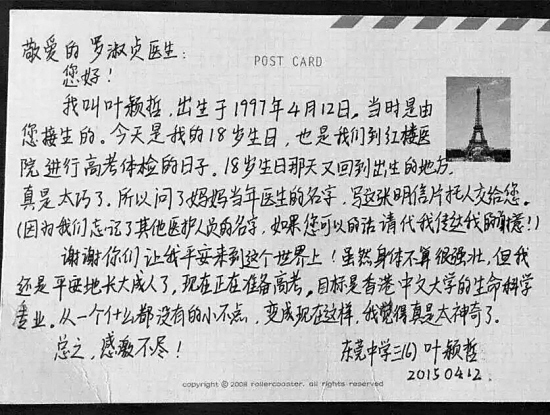 POST CARD
敬爱的罗淑贞医生:
您好!
我叫叶颖哲,出生于1997年4月12日。当时是由
您接生的。今天是我的18岁生日,也是我们到红楼医
院进行高考体检的日子。18岁生日那天又回到出生的地方,
真是太巧了。所以问了妈妈当年医生的名字,写这张明信片托人交给您。
(因为我们忘记了其他医护人员的名字,如果您可以的话请代我传达我的谢意!)
谢谢你们让我平安来到这个世界上!虽然身体不算很强壮,但我
还是平安地长大成人了,现在正在准备高考。目标是香港中文大学的生命科学
专业。从一个什么都没有的小不点,变成现在这样,我觉得真是太神奇了。
总之,感激不尽!
东莞中学三(6) 叶颖哲
2015.04.12.
copyright © 2008 rollercoaster. all rights reserved